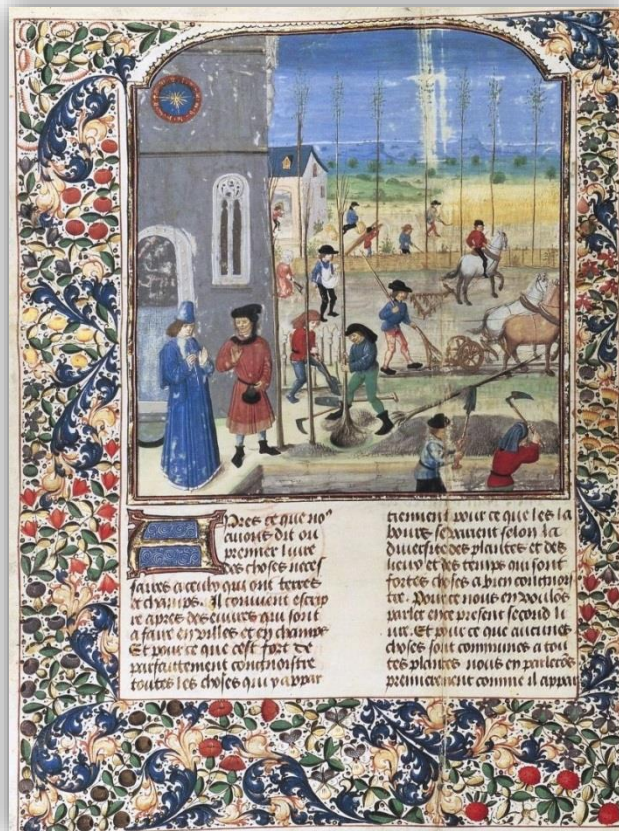 Apres ce que noꝰ
auons dit ou
premier liure
des choses neces
saires a ceulx qui ont terres
et champs. Il conuient escrip
re apres des euures qui sont
a faire en villes et en champs
Et pour ce que cest fort de
parfaittement congnoistre
toutes les choses qui y appar
tiennent pour ce que les la
bours se varient selon la
diuersite des plantes et des
lieux et des temps qui sont
fortes choses a bien congnois
tre. Pour ce nous en voulōs
parler en ce present second li
ure. Et pour ce que aucunes
choses sont communes a tou
tes plantes nous en parlerōs
premierement comme il appar